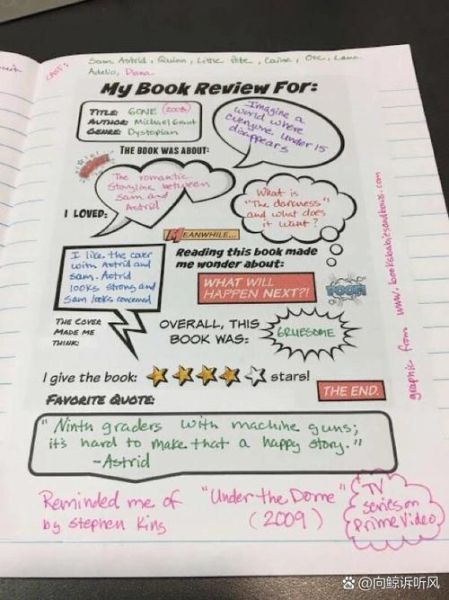 CAST: Sam, Astrid, Quinn, Little Pete, Caine, Orc, Lana
Adelio, Diana
My Book Review For:
TITLE: GONE (2008)
AUTHOR: Michael Grant
GENRE: Dystopian
Imagine a
world where
everyone under 15
disappears
THE BOOK WAS ABOUT:
The romantic
storyline between
Sam and
Astrid
I LOVED:
What is
"The darkness"
and what does
it want?
MEANWHILE...
Reading this book made
me wonder about:
I like the cover
with Astrid and
Sam. Astrid
looks strong and
Sam looks concerned
WHAT WILL
HAPPEN NEXT?!
POOF!
THE COVER
MADE ME
THINK:
OVERALL, THIS
BOOK WAS:
GRUESOME
I give the book:
stars!
THE END.
FAVORITE QUOTE:
"Ninth graders with machine guns;
it's hard to make that a happy story."
-Astrid
Reminded me of "Under the Dome"
by Stephen King (2009)
TV
series on
Prime Video
graphic from www.booksbabitsandbows.com
@向鲸诉听风